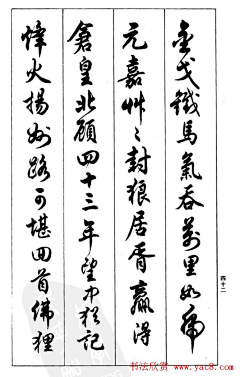 金戈鐵馬氣吞萬里如虎
元嘉艸〻封狼居胥贏得
倉皇北顧四十三年望中猶記
烽火揚州路可堪回首佛狸
四十二
书法欣赏 www.yac8.com